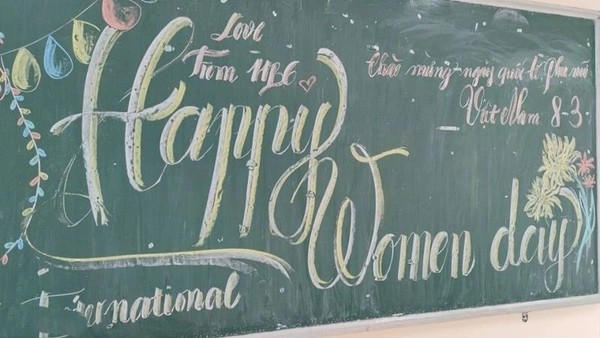 Love
From 11B6
Happy
Chào mừng ngày quốc tế phụ nữ
Việt Nam 8-3
Women day